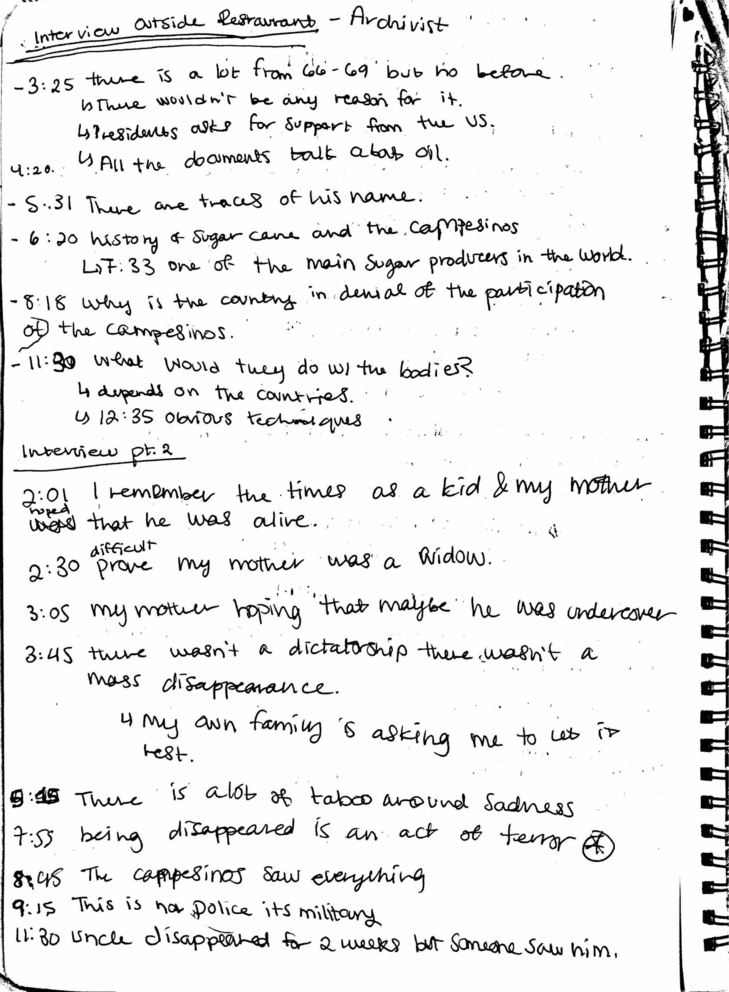 Interview outside Restaurant - Archivist
- 3:25 there is a lot from '66-69' but no before.
↳ There wouldn't be any reason for it.
↳ Presidents asks for support from the US.
4:20. ↳ All the documents talk abab oil.
- 5:31 There are traces of his name.
- 6:20 history of Sugar cane and the campesinos
↳ 7:33 one of the main Sugar producers in the world.
- 8:18 why is the country in denial of the participation
of the campesinos.
- 11:30 what would they do w/ the bodies?
↳ depends on the countries.
↳ 12:35 obvious techniques
Interview pt. 2
2:01 I remember the times as a kid & my mother
hoped that he was alive.
difficult
2:30 prove my mother was a widow.
3:05 my mother hoping that maybe he was undercover
3:45 there wasn't a dictatorship there wasn't a
mass disappearance.
↳ My own family is asking me to let it
rest.
There is alot of taboo around Sadness
7:55 being disappeared is an act of terror *
8:45 The campesinos saw everything
9:15 This is no police its military
11:30 uncle disappeared for 2 weeks but someone saw him.